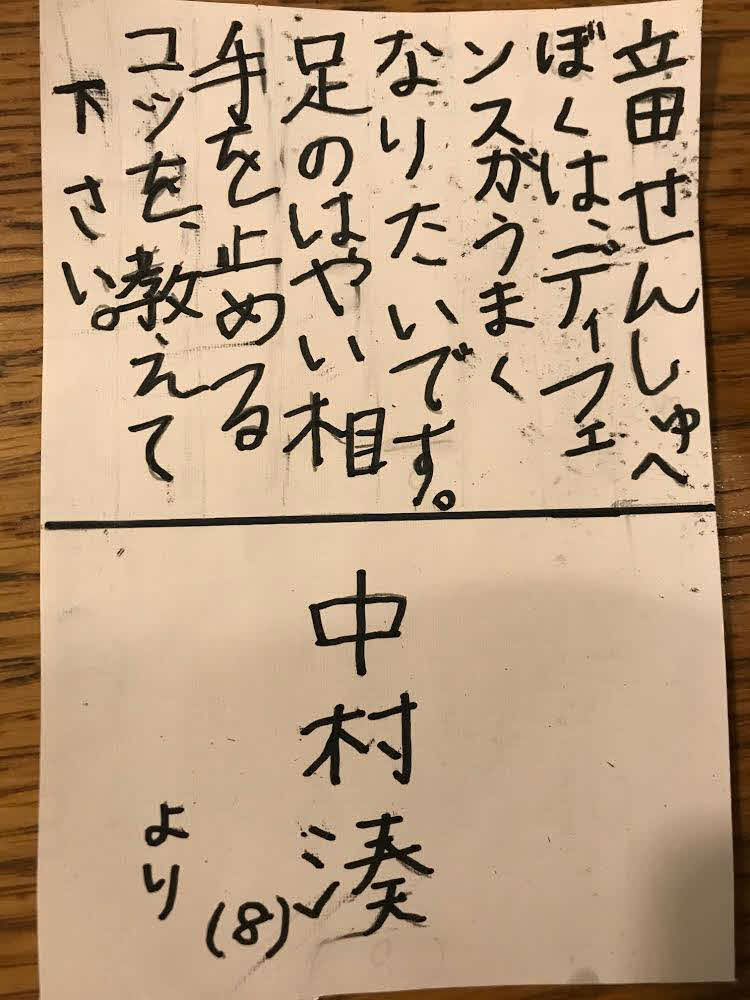 立田せんしゅへ
ぼくは、ディフェ
ンスがうまく
なりたいです。
足のはやい相
手を止める
コツを、教えて
下さい。
中村湊
(8)
より